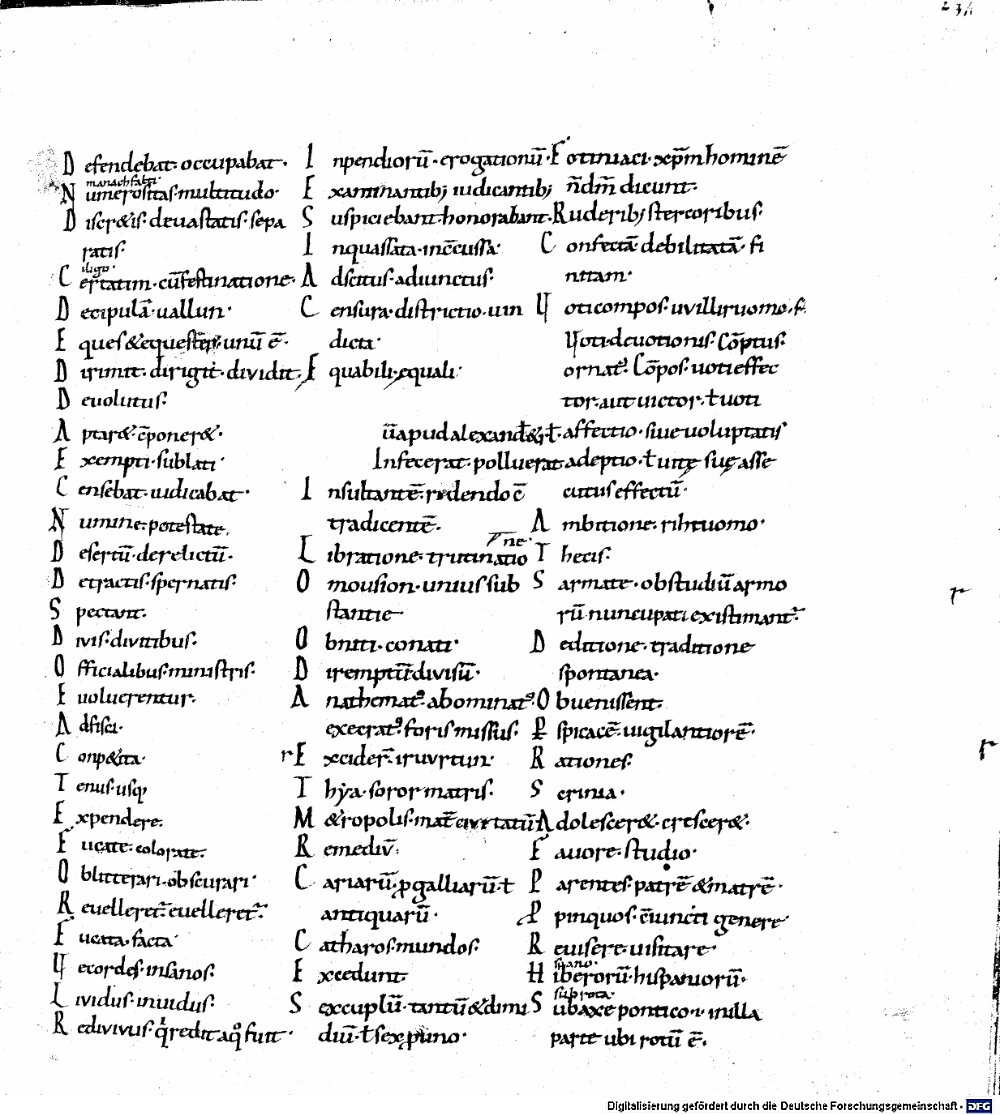 Defendebat· occupabat·
Numerositas· multitudo·
Diser&is· deuastatis· sepa
ratis·
Certatim· cū festinatione·
Decipulā· uallun·
Eques & equester· unū ē·
Dirimit· dirigit· dividit·
Deuolutus·
Aptar&· cōponer&·
Exempti· sublati·
Censebat· iudicabat·
Numine· potestate·
Desertū· derelictū·
Detractis· spernatis·
Spectant·
Divis· divitibus·
Officialibus· ministris·
Euoluerentur·
Adfisci·
Conp&ita·
Tenus· usq;
Expendere·
Fucate· colorate·
Oblitterari· obscurari·
Reuelleret· euelleret·
Fucata· facta·
Vecordes· insanos·
Lividus· inuidus·
Redivivus· q̇redit aq̊ fuit·
Inpendiorū· erogationū·
Examinantib; iudicantib;
Suspiciebant· honorabant·
Inquassata· incēussa·
Adscitus· adiunctus·
Censura· districtio· uin
dicta·
Equabili· equali·
ūapud alexand
Infecerat· polluerat
Insultantē· ridendo c̄
tradicentē·
Libratione· trutinatio
ne·
Omousion· unius sub
stantie
Obniti· conati·
Diremptū· divisū·
Anathemat᾽· abominat᾽·
execrat᾽· foris missus·
Exciderī·
Thẏa· soror matris·
M&ropolis· mat̄ civitatū
Remediv̄·
Cariarū· p galliarū· ł
antiquarū·
Catharos· mundos·
Excedunt·
Sexcuplū· tantū & dimi
diū· ł sex p uno·
Fotiniaci· xp̄m hominē
n̄ dm̄ dicunt·
Ruderib; stercoribus·
Confectā· debilitatā· fi
nitam·
Voti compos·
Voti· deuotionis· Cōptus·
ornat᾽· Cōpos· uoti effec
tor· aut uictor· ł uoti
affectio· siue uoluptatis
adeptio· ł uite sue asse
cutus effectū·
Ambitione· rihtuomo·
Thecis·
Sarmate· ob studiū armo
rū nuncupati existimant᾽·
Deditione· traditione
spontanea·
Obuenissent·
Pspicacē· uigilantiorē·
Rationes·
Scrinia·
Adolescer&· crescer&·
Fauore· studio·
Parentes· patrē & matrē·
Ppinquos· c̄iuncti genere
Reuisere· uisitare·
Hiberorū· hispanorū·
Subaxe pontico· in illa
parte ubi rotū ē·
Digitalisierung gefördert durch die Deutsche Forschungsgemeinschaft - DFG